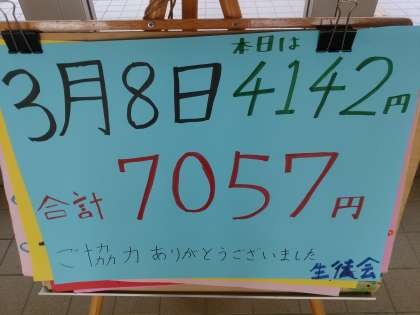 本日は
3月8日 4142円
合計 7057円
ご協力ありがとうございました
生徒会